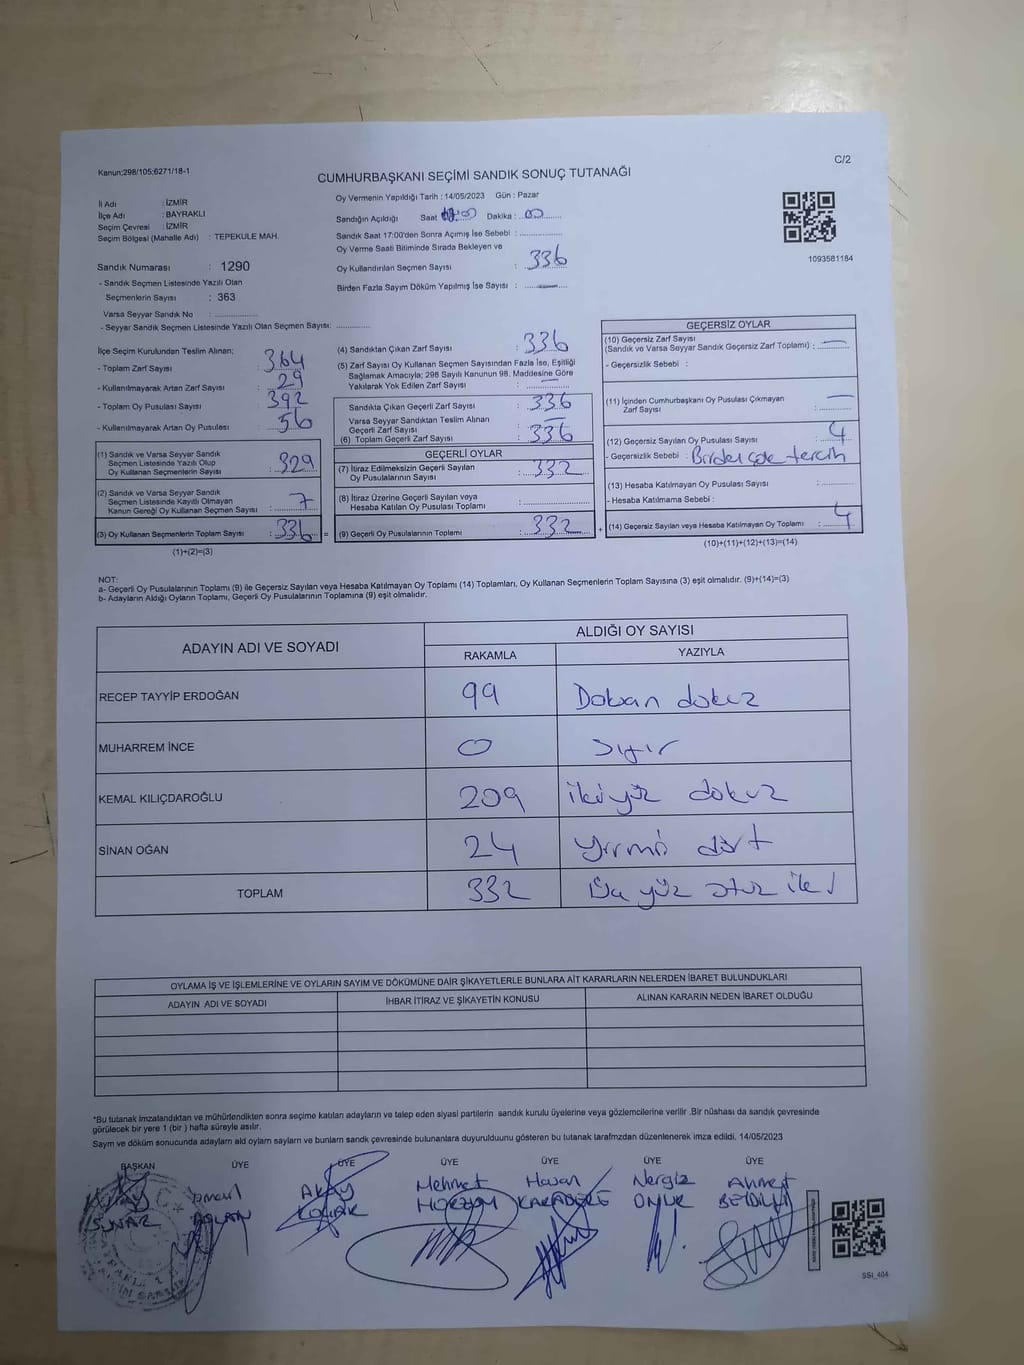 Kanun:298/105;6271/18-1
C/2
CUMHURBAŞKANI SEÇİMİ SANDIK SONUÇ TUTANAĞI
İli Adı : İZMİR
İlçe Adı : BAYRAKLI
Seçim Çevresi : İZMİR
Seçim Bölgesi (Mahalle Adı) : TEPEKULE MAH.
Sandık Numarası : 1290
- Sandık Seçmen Listesinde Yazılı Olan
Seçmenlerin Sayısı : 363
Varsa Seyyar Sandık No :
- Seyyar Sandık Seçmen Listesinde Yazılı Olan Seçmen Sayısı:
Oy Vermenin Yapıldığı Tarih : 14/05/2023 Gün : Pazar
Sandığın Açıldığı Saat Dakika : 00
Sandık Saat 17:00'den Sonra Açımış İse Sebebi :
Oy Verme Saati Bitiminde Sırada Bekleyen ve
Oy Kullandırılan Seçmen Sayısı : 336
Birden Fazla Sayım Döküm Yapılmış İse Sayısı : —
1093581184
İlçe Seçim Kurulundan Teslim Alınan;
- Toplam Zarf Sayısı : 364
- Kullanılmayarak Artan Zarf Sayısı : 29
- Toplam Oy Pusulası Sayısı : 392
- Kullanılmayarak Artan Oy Pusulası : 56
(1) Sandık ve Varsa Seyyar Sandık
Seçmen Listesinde Yazılı Olup
Oy Kullanan Seçmenlerin Sayısı : 329
(2) Sandık ve Varsa Seyyar Sandık
Seçmen Listesinde Kayıtlı Olmayan
Kanun Gereği Oy Kullanan Seçmen Sayısı : 7
(3) Oy Kullanan Seçmenlerin Toplam Sayısı : 336 =
(1)+(2)=(3)
(4) Sandıktan Çıkan Zarf Sayısı : 336
(5) Zarf Sayısı Oy Kullanan Seçmen Sayısından Fazla İse, Eşitliği
Sağlamak Amacıyla; 298 Sayılı Kanunun 98. Maddesine Göre
Yakılarak Yok Edilen Zarf Sayısı : —
Sandıkta Çıkan Geçerli Zarf Sayısı : 336
Varsa Seyyar Sandıktan Teslim Alınan
Geçerli Zarf Sayısı : —
(6) Toplam Geçerli Zarf Sayısı : 336
GEÇERLİ OYLAR
(7) İtiraz Edilmeksizin Geçerli Sayılan
Oy Pusulalarının Sayısı : 332
(8) İtiraz Üzerine Geçerli Sayılan veya
Hesaba Katılan Oy Pusulası Toplamı :
(9) Geçerli Oy Pusulalarının Toplamı : 332 +
GEÇERSİZ OYLAR
(10) Geçersiz Zarf Sayısı
(Sandık ve Varsa Seyyar Sandık Geçersiz Zarf Toplamı) : —
- Geçersizlik Sebebi :
(11) İçinden Cumhurbaşkanı Oy Pusulası Çıkmayan
Zarf Sayısı : —
(12) Geçersiz Sayılan Oy Pusulası Sayısı : 4
- Geçersizlik Sebebi : Birden çok tercih
(13) Hesaba Katılmayan Oy Pusulası Sayısı :
- Hesaba Katılmama Sebebi :
(14) Geçersiz Sayılan veya Hesaba Katılmayan Oy Toplamı : 4
(10)+(11)+(12)+(13)=(14)
NOT:
a- Geçerli Oy Pusulalarının Toplamı (9) ile Geçersiz Sayılan veya Hesaba Katılmayan Oy Toplamı (14) Toplamları, Oy Kullanan Seçmenlerin Toplam Sayısına (3) eşit olmalıdır. (9)+(14)=(3)
b- Adayların Aldığı Oyların Toplamı, Geçerli Oy Pusulalarının Toplamına (9) eşit olmalıdır.
ADAYIN ADI VE SOYADI ALDIĞI OY SAYISI
RAKAMLA YAZIYLA
RECEP TAYYİP ERDOĞAN 99 Doksan dokuz
MUHARREM İNCE 0 Sıfır
KEMAL KILIÇDAROĞLU 209 ikiyüz dokuz
SİNAN OĞAN 24 yirmi dört
TOPLAM 332 Üç yüz otuz iki
OYLAMA İŞ VE İŞLEMLERİNE VE OYLARIN SAYIM VE DÖKÜMÜNE DAİR ŞİKAYETLERLE BUNLARA AİT KARARLARIN NELERDEN İBARET BULUNDUKLARI
ADAYIN ADI VE SOYADI İHBAR İTİRAZ VE ŞİKAYETİN KONUSU ALINAN KARARIN NEDEN İBARET OLDUĞU
*Bu tutanak imzalandıktan ve mühürlendikten sonra seçime katılan adayların ve talep eden siyasi partilerin sandık kurulu üyelerine veya gözlemcilerine verilir .Bir nüshası da sandık çevresinde
görülecek bir yere 1 (bir ) hafta süreyle asılır.
Sayım ve döküm sonucunda adayların ald oyların sayları ve bunların sandık çevresinde bulunanlara duyurulduunu gösteren bu tutanak tarafmzdan düzenlenerek imza edildi. 14/05/2023
BAŞKAN ÜYE ÜYE ÜYE ÜYE ÜYE ÜYE
SUNAR
İsmail ASLAN
AKAY KOÇAK
Mehmet
Hasan KARADERE
Nergiz ONUR
Ahmet
SSI_404